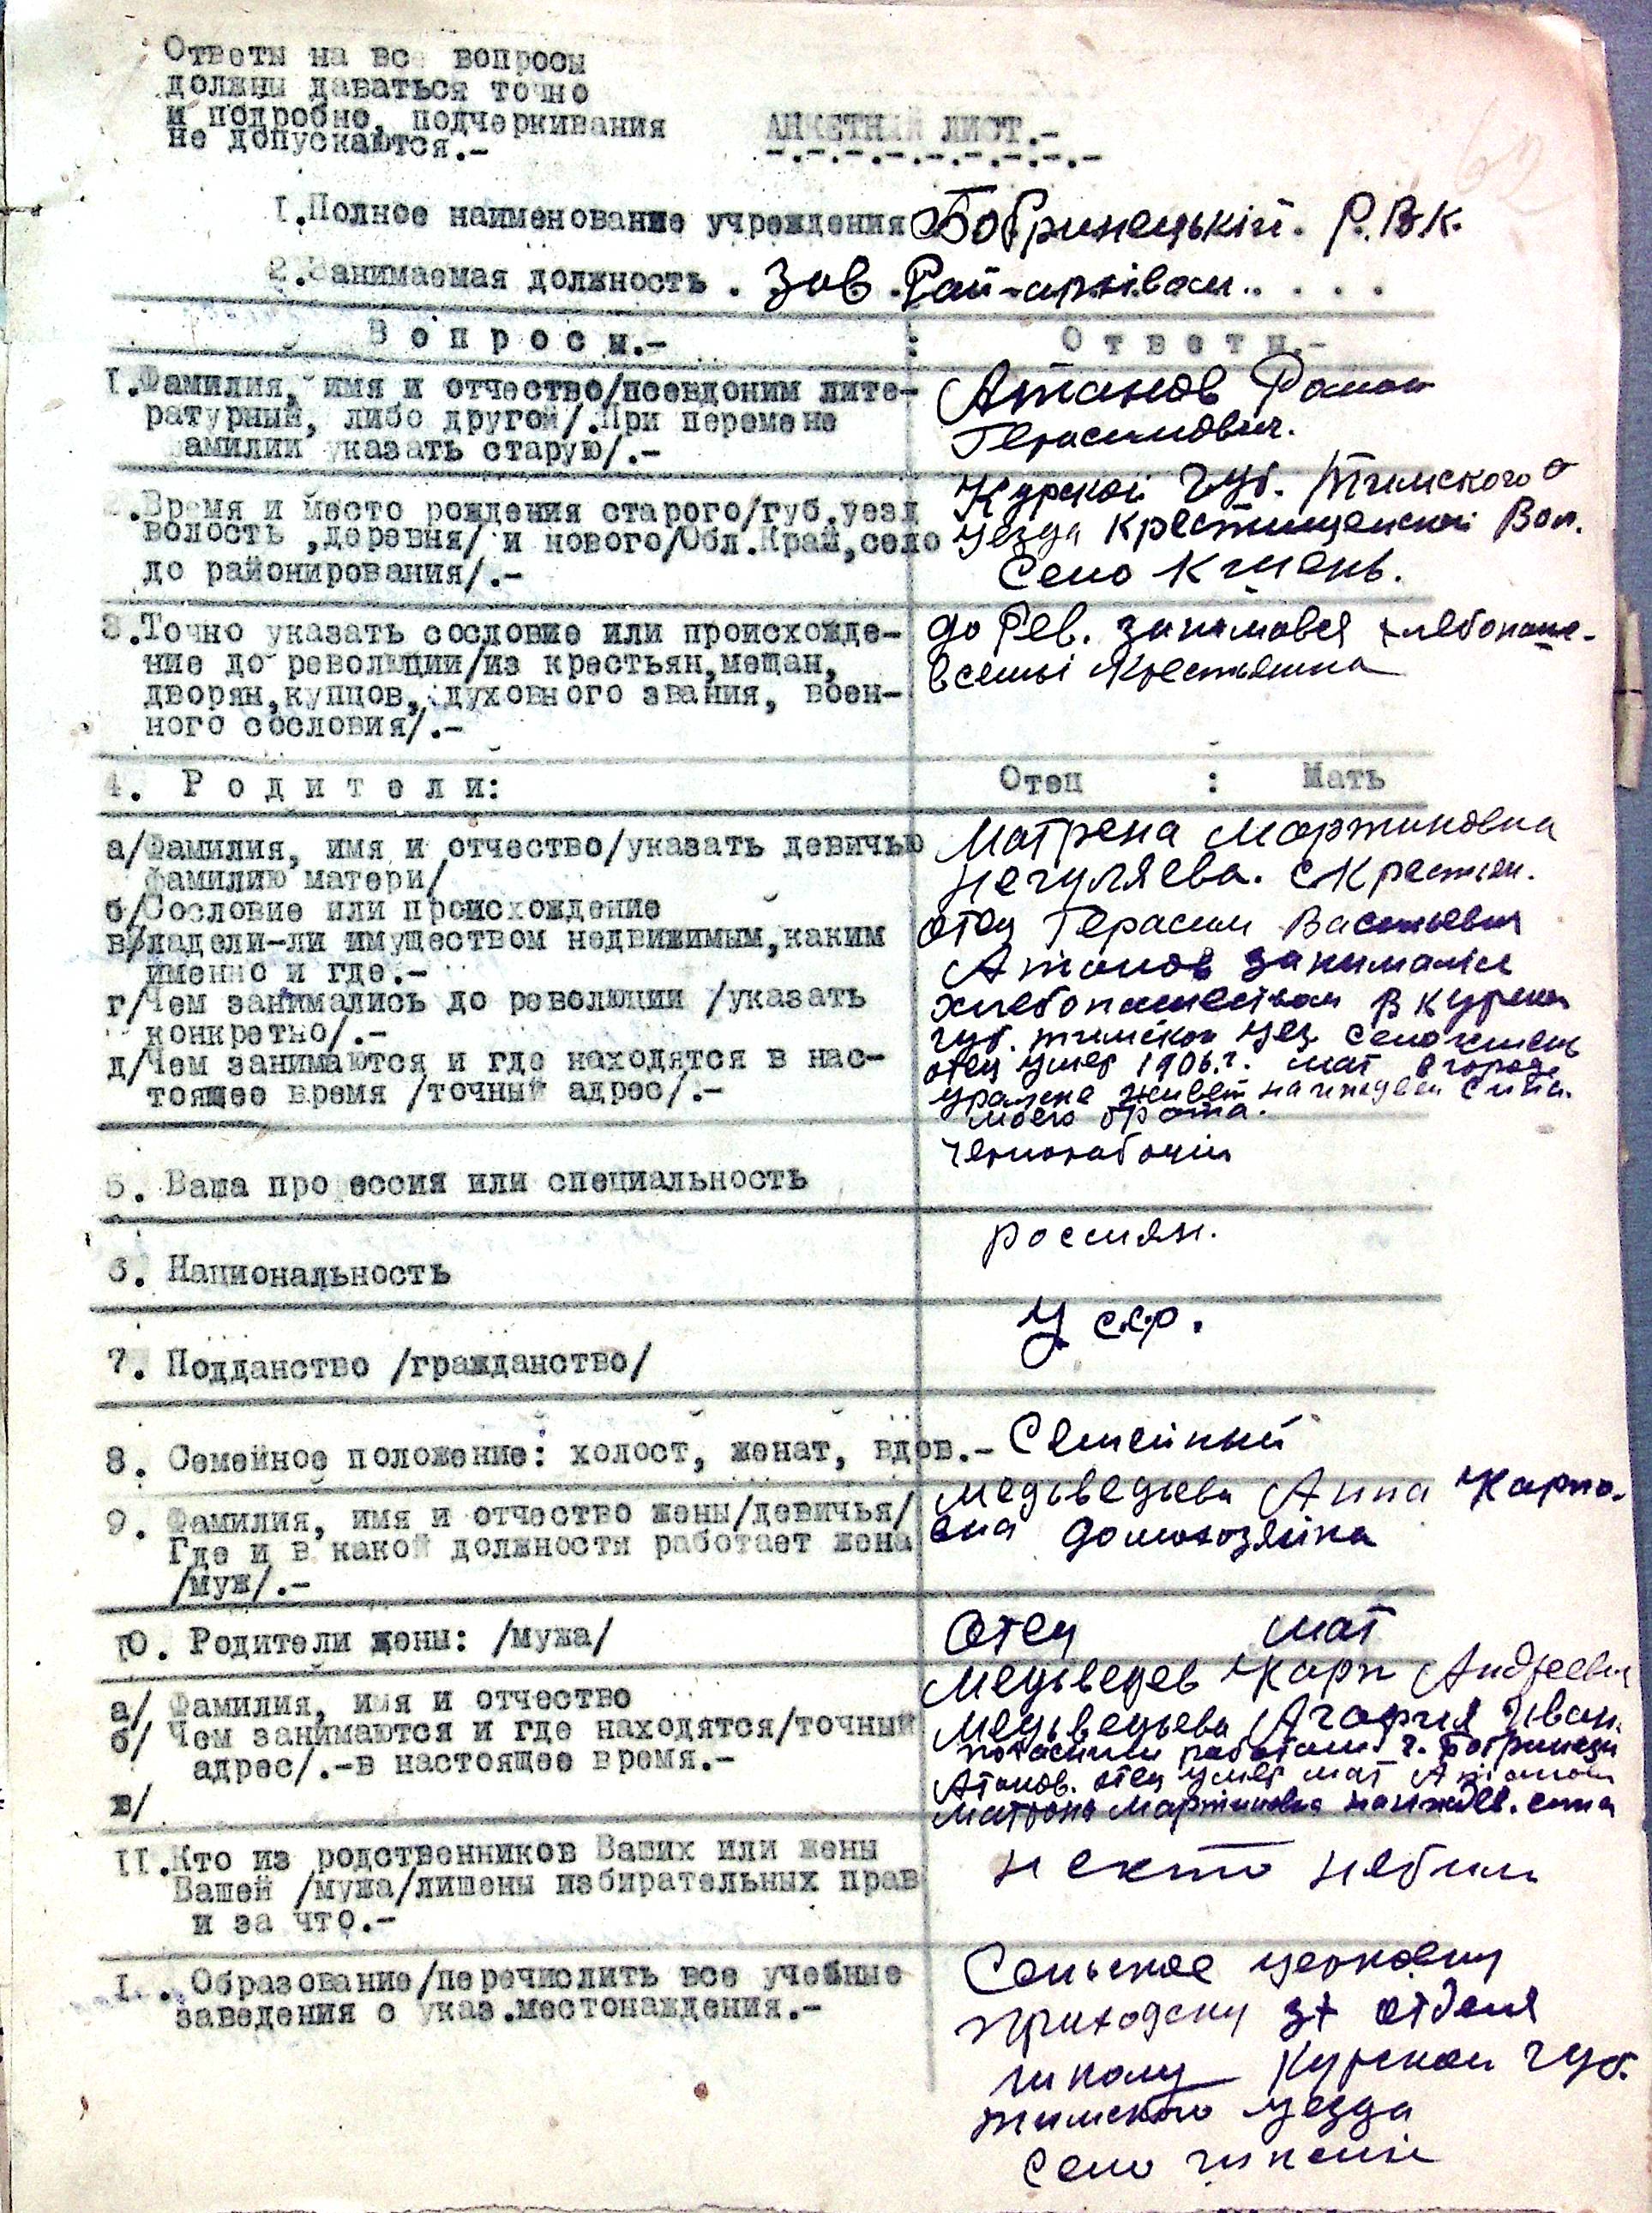 Ответы на все вопросы
должны даваться точно
и подробно, подчеркивания
не допускаются.-
АНКЕТНЫЙ ЛИСТ.-
62
I.Полное наименование учреждения Бобринецький. Р.В.К.
2.Занимаемая должность . Зав. Рай-архівом.....
В о п р о с ы.- : О т в е т ы.-
I.Фамилия, имя и отчество/псевдоним лите-
ратурный, либо другой/.При перемене
фамилии указать старую/.-
Атанов Роман
Герасимович.
2.Время и место рождения старого/губ.уезд
волость ,деревня/ и нового/Обл.Край,село
до районирования/.-
Курской Губ. Тимского
уезда Крестищенской Вол.
Село Кшень.
3.Точно указать сословие или происхожде-
ние до революции/из крестьян,мещан,
дворян,купцов, духовного звания, воен-
ного сословия/.-
до Рев. занимався хлебопаше-
в семьі Крестьянина
4. Р о д и т е л и:
Отец : Мать
а/Фамилия, имя и отчество/указать девичью
фамилию матери/
б/Сословие или происхождение
в/Владели-ли имуществом недвижимым,каким
именно и где.-
г/Чем занимались до революции /указать
конкретно/.-
д/Чем занимаются и где находятся в нас-
тоящее время /точный адрес/.-
Матрена Мартиновна
Нечуляева. с Крестьян.
отец Герасим Васильевич
Атанов занимались
хлебопашеством в Курской
губ. тимском уез. село кшень
отец умер 1906.г. мат в городе
живет на иждевен сина.
моего брата.
5. Ваша профессия или специальность
Чернорабочий
6. Национальность
россиян.
7. Подданство /гражданство/
У сср.
8. Семейное положение: холост, женат, вдов.- Семейный
9. Фамилия, имя и отчество жены/девичья/
Где и в какой должности работает жена
/муж/.-
Медьведьева Анна Карпо-
вна домохозяйка
10. Родители жены: /мужа/
Отец мат
а/ Фамилия, имя и отчество
б/ Чем занимаются и где находятся/точный
адрес/.-в настоящее время.-
в/
Медьведев Карп Андреевич
Медьведьева Агафия Иван.
работали г. Бобринецы
Атанов. отец умер мат Атанова
Матрона Мартиновна на иждев. сина
II.Кто из родственников Ваших или жены
Вашей /мужа/лишены избирательных прав
и за что.-
некто небил
I . Образование/перечислить все учебные
заведения с указ.местонахождения.-
Сельское церковну
приходску 3х отделя
школу Курской губ.
тимского уезда
село